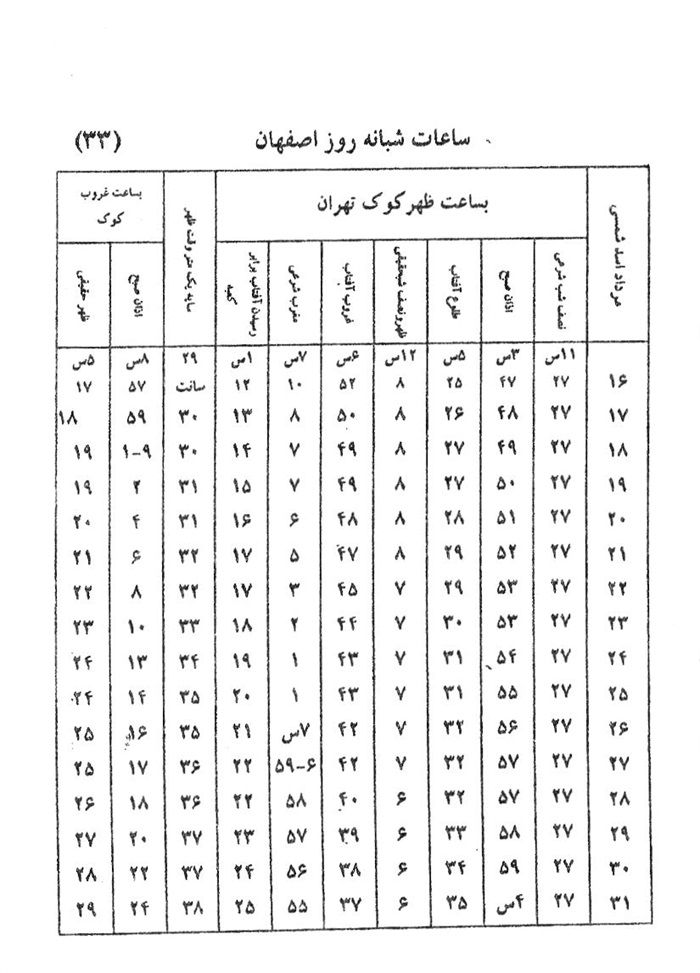 ساعات شبانه روز اصفهان (۳۳)
مرداد اسد شمسی | بساعت ظهر کوک تهران | سایه یک متر وقت ظهر | بساعت غروب کوک
نصف شب شرعی | اذان صبح | طلوع آفتاب | ظهر و نصف شب حقیقی | غروب آفتاب | مغرب شرعی | رسیدن آفتاب برابر کعبه | اذان صبح | ظهر حقیقی
۱۱س | ۳س | ۵س | ۱۲س | ۶س | ۷س | ۱س | ۲۹ | ۸س | ۵س
۱۶ | ۲۷ | ۴۷ | ۲۵ | ۸ | ۵۲ | ۱۰ | ۱۲ | سانت | ۵۷ | ۱۷
۱۷ | ۲۷ | ۴۸ | ۲۶ | ۸ | ۵۰ | ۸ | ۱۳ | ۳۰ | ۵۹ | ۱۸
۱۸ | ۲۷ | ۴۹ | ۲۷ | ۸ | ۴۹ | ۷ | ۱۴ | ۳۰ | ۹-۱ | ۱۹
۱۹ | ۲۷ | ۵۰ | ۲۷ | ۸ | ۴۹ | ۷ | ۱۵ | ۳۱ | ۲ | ۱۹
۲۰ | ۲۷ | ۵۱ | ۲۸ | ۸ | ۴۸ | ۶ | ۱۶ | ۳۱ | ۴ | ۲۰
۲۱ | ۲۷ | ۵۲ | ۲۹ | ۸ | ۴۷ | ۵ | ۱۷ | ۳۲ | ۶ | ۲۱
۲۲ | ۲۷ | ۵۳ | ۲۹ | ۷ | ۴۵ | ۳ | ۱۷ | ۳۲ | ۸ | ۲۲
۲۳ | ۲۷ | ۵۳ | ۳۰ | ۷ | ۴۴ | ۲ | ۱۸ | ۳۳ | ۱۰ | ۲۳
۲۴ | ۲۷ | ۵۴ | ۳۱ | ۷ | ۴۳ | ۱ | ۱۹ | ۳۴ | ۱۳ | ۲۴
۲۵ | ۲۷ | ۵۵ | ۳۱ | ۷ | ۴۳ | ۱ | ۲۰ | ۳۵ | ۱۴ | ۲۴
۲۶ | ۲۷ | ۵۶ | ۳۲ | ۷ | ۴۲ | ۷س | ۲۱ | ۳۵ | ۱۶ | ۲۵
۲۷ | ۲۷ | ۵۷ | ۳۲ | ۷ | ۴۲ | ۶-۵۹ | ۲۲ | ۳۶ | ۱۷ | ۲۵
۲۸ | ۲۷ | ۵۷ | ۳۲ | ۶ | ۴۰ | ۵۸ | ۲۲ | ۳۶ | ۱۸ | ۲۶
۲۹ | ۲۷ | ۵۸ | ۳۳ | ۶ | ۳۹ | ۵۷ | ۲۳ | ۳۷ | ۲۰ | ۲۷
۳۰ | ۲۷ | ۵۹ | ۳۴ | ۶ | ۳۸ | ۵۶ | ۲۴ | ۳۷ | ۲۲ | ۲۸
۳۱ | ۲۷ | ۴س | ۳۵ | ۶ | ۳۷ | ۵۵ | ۲۵ | ۳۸ | ۲۴ | ۲۹